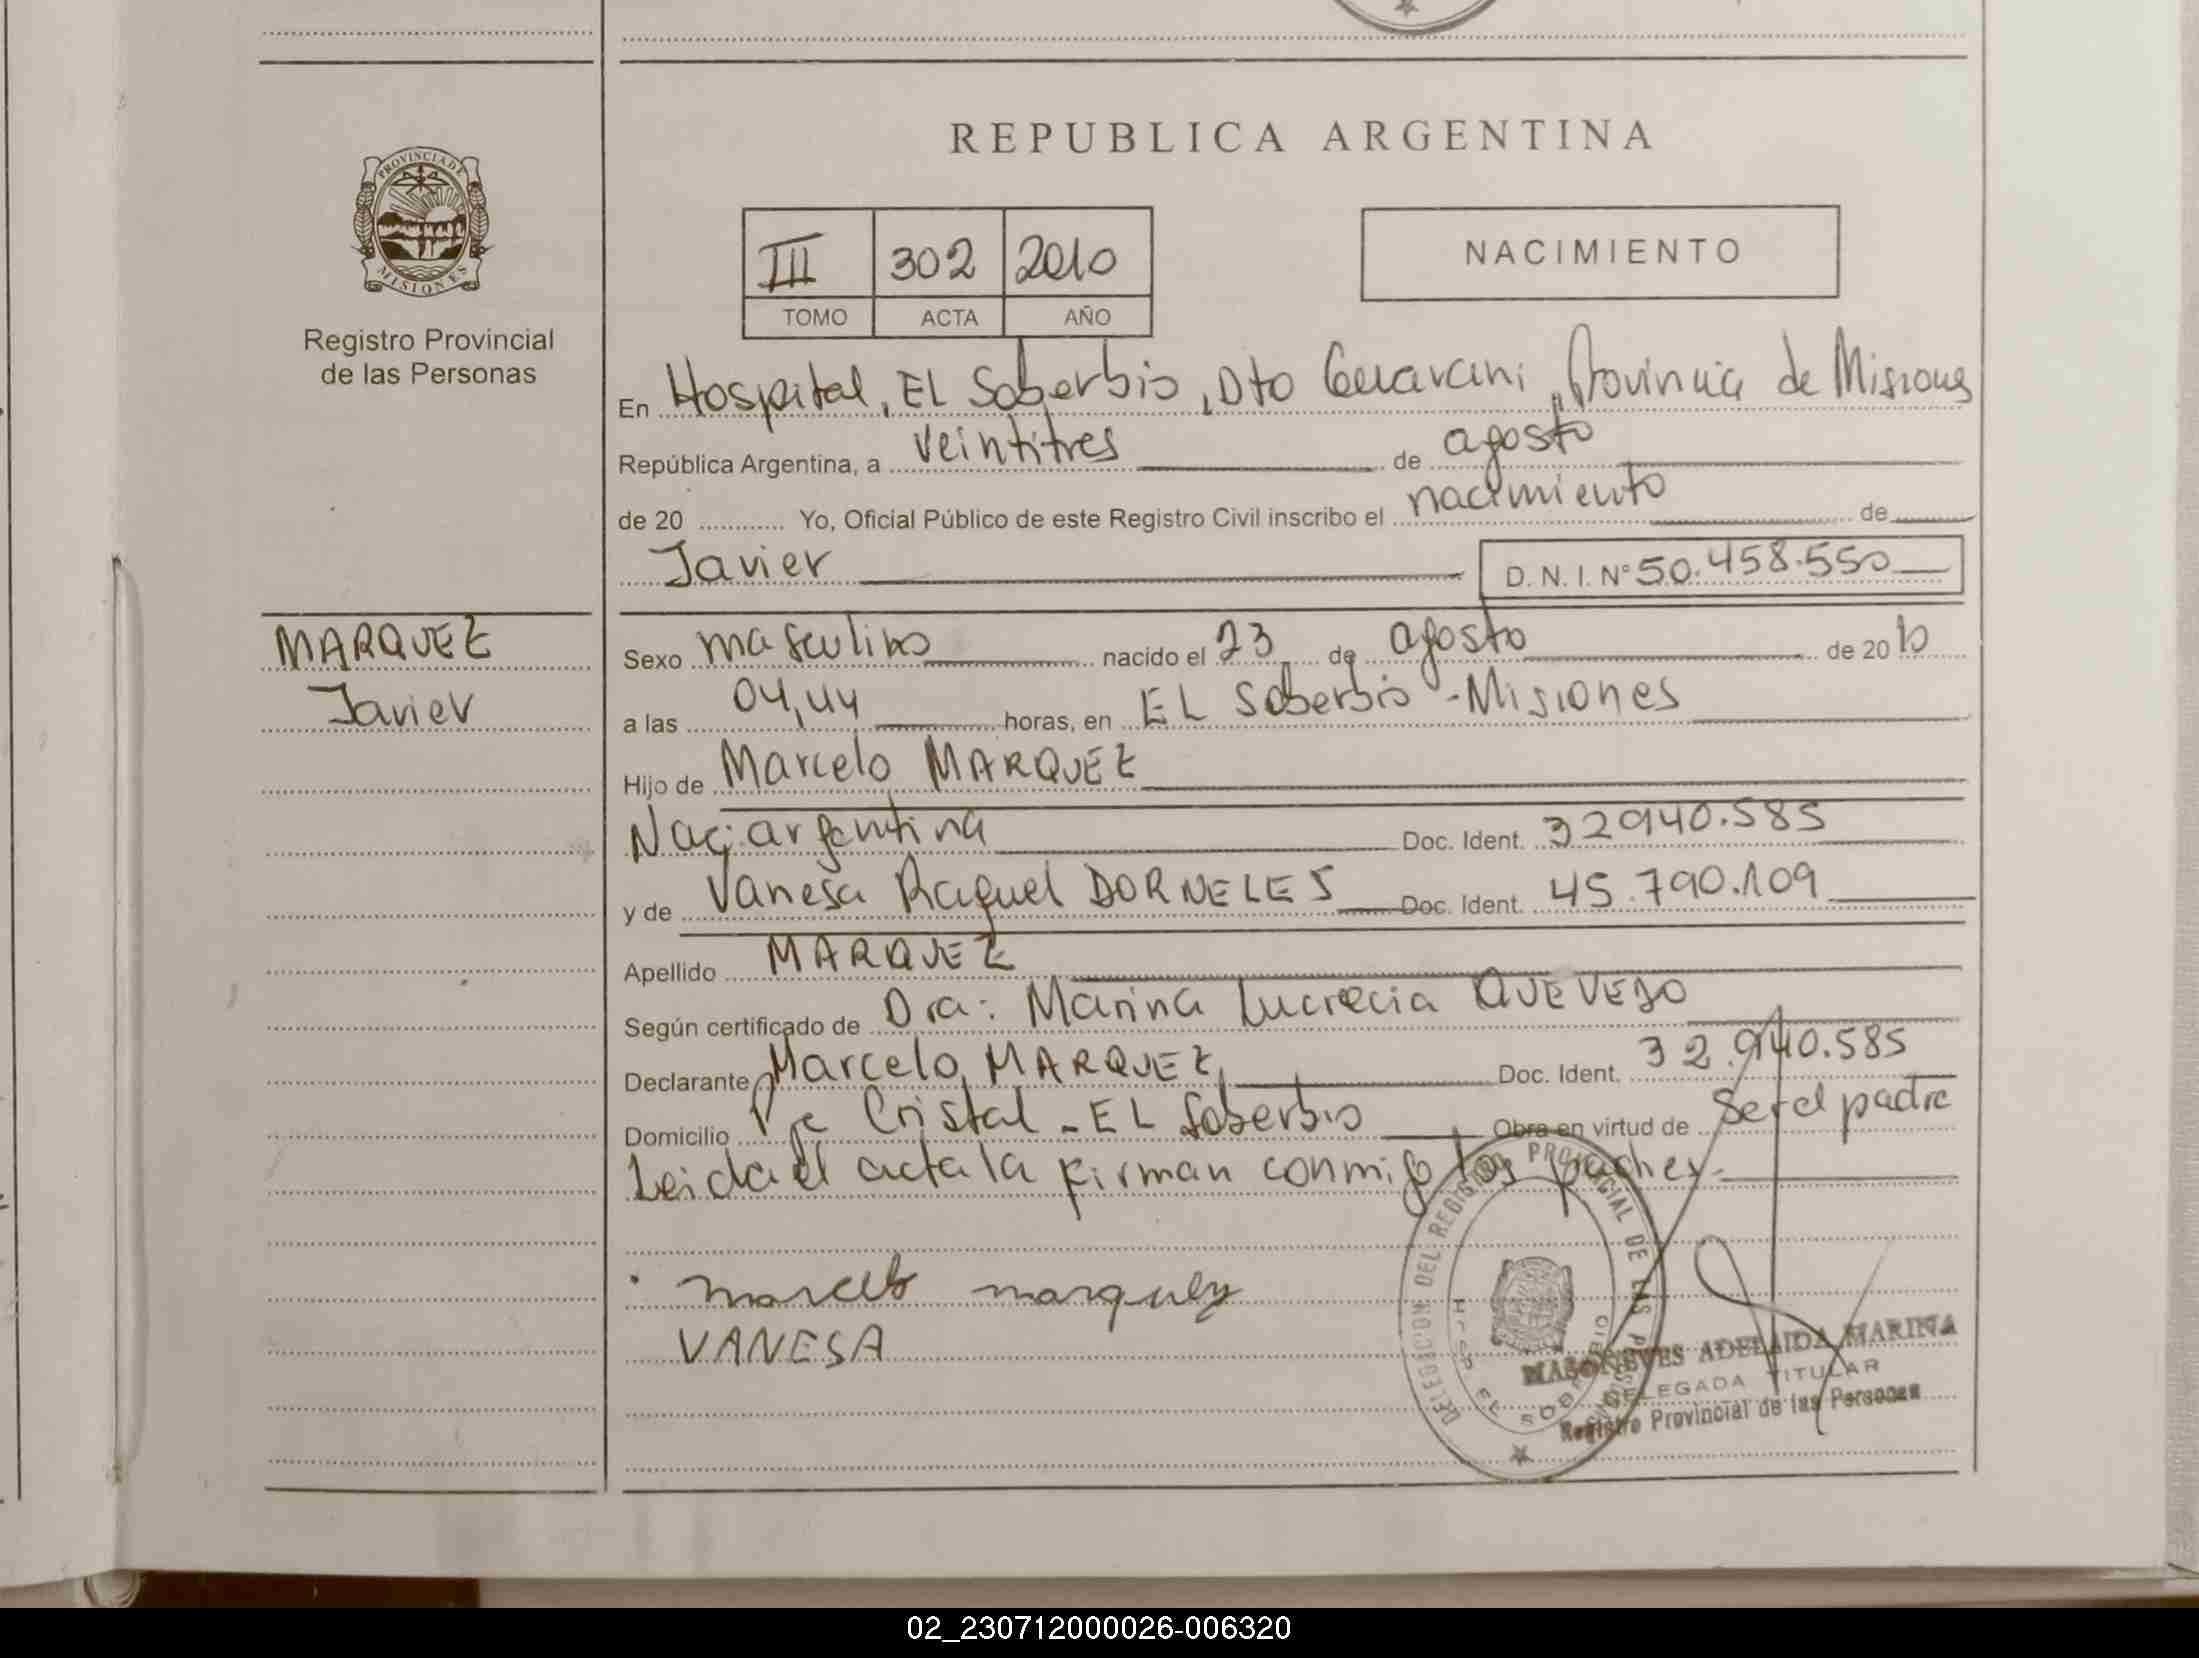 REPUBLICA ARGENTINA
PROVINCIA DE
MISIONES
Registro Provincial
de las Personas
III 302 2010
TOMO ACTA AÑO
NACIMIENTO
En Hospital, EL Soberbio, Dto Guarani, Provincia de Misiones
República Argentina, a veintitres de agosto
de 20 ............ Yo, Oficial Público de este Registro Civil inscribo el nacimiento de
Javier D. N. I. N° 50.458.550
MARQUEZ
Javier
Sexo masculino nacido el 23 de agosto de 2010
a las 04,44 horas, en EL Soberbio - Misiones
Hijo de Marcelo MARQUEZ
Nac: argentina Doc. Ident. 32940.585
y de Vanesa Raquel DORNELES Doc. Ident. 45.790.109
Apellido MARQUEZ
Según certificado de Dra: Marina Lucrecia QUEVEDO
Declarante Marcelo MARQUEZ Doc. Ident. 32.940.585
Domicilio Pje Cristal - EL Soberbio Obra en virtud de ser el padre
Leida el acta la firman conmigo los padres.
marcelo marquez
VANESA
DELEGACION DEL REGISTRO PROVINCIAL DE LAS
EL
ADELAIDA MARINA
DELEGADA TITULAR
Registro Provincial de las Personas
02_230712000026-006320